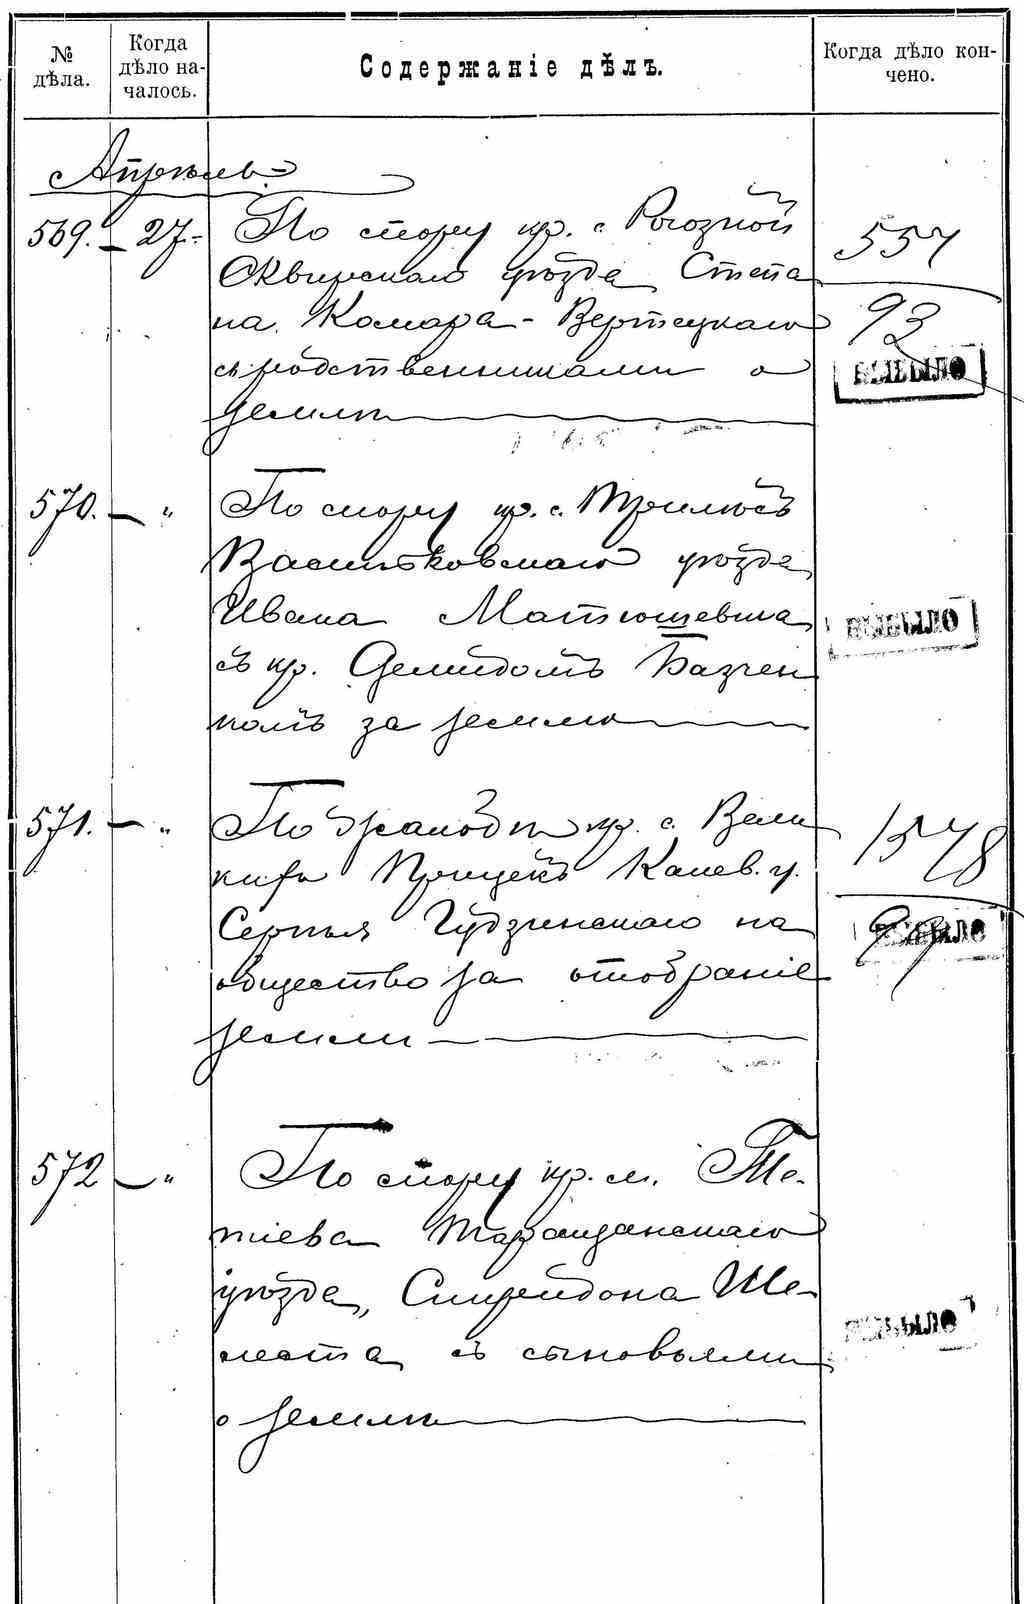 № дѣла.
Когда дѣло началось.
Содержаніе дѣлъ.
Когда дѣло кончено.
Апрѣль
569. – 27 – По спору кр. с. Рогозной
Сквирскаго уѣзда Степа
на Комара-Вертецкаго
съ родственниками о
землѣ
557
93
ВЫБЫЛО
570. – „ По спору кр. с. Трилѣсъ
Васильковскаго уѣзда
Ивана Матюшевска
съ кр. Демидомъ Базчен
комъ за землю
ВЫБЫЛО
571. – „ По жалобѣ кр. с. Вели
кихъ Прицекъ Канев. у.
Сергѣя Гудзинскаго на
общество за отобраніе
земли
1578
ВЫБЫЛО
572 – „ По спору кр. м. Те-
тіева Таращанскаго
уѣзда, Спиридона Ше-
леста съ сыновьями
о землѣ
ВЫБЫЛО